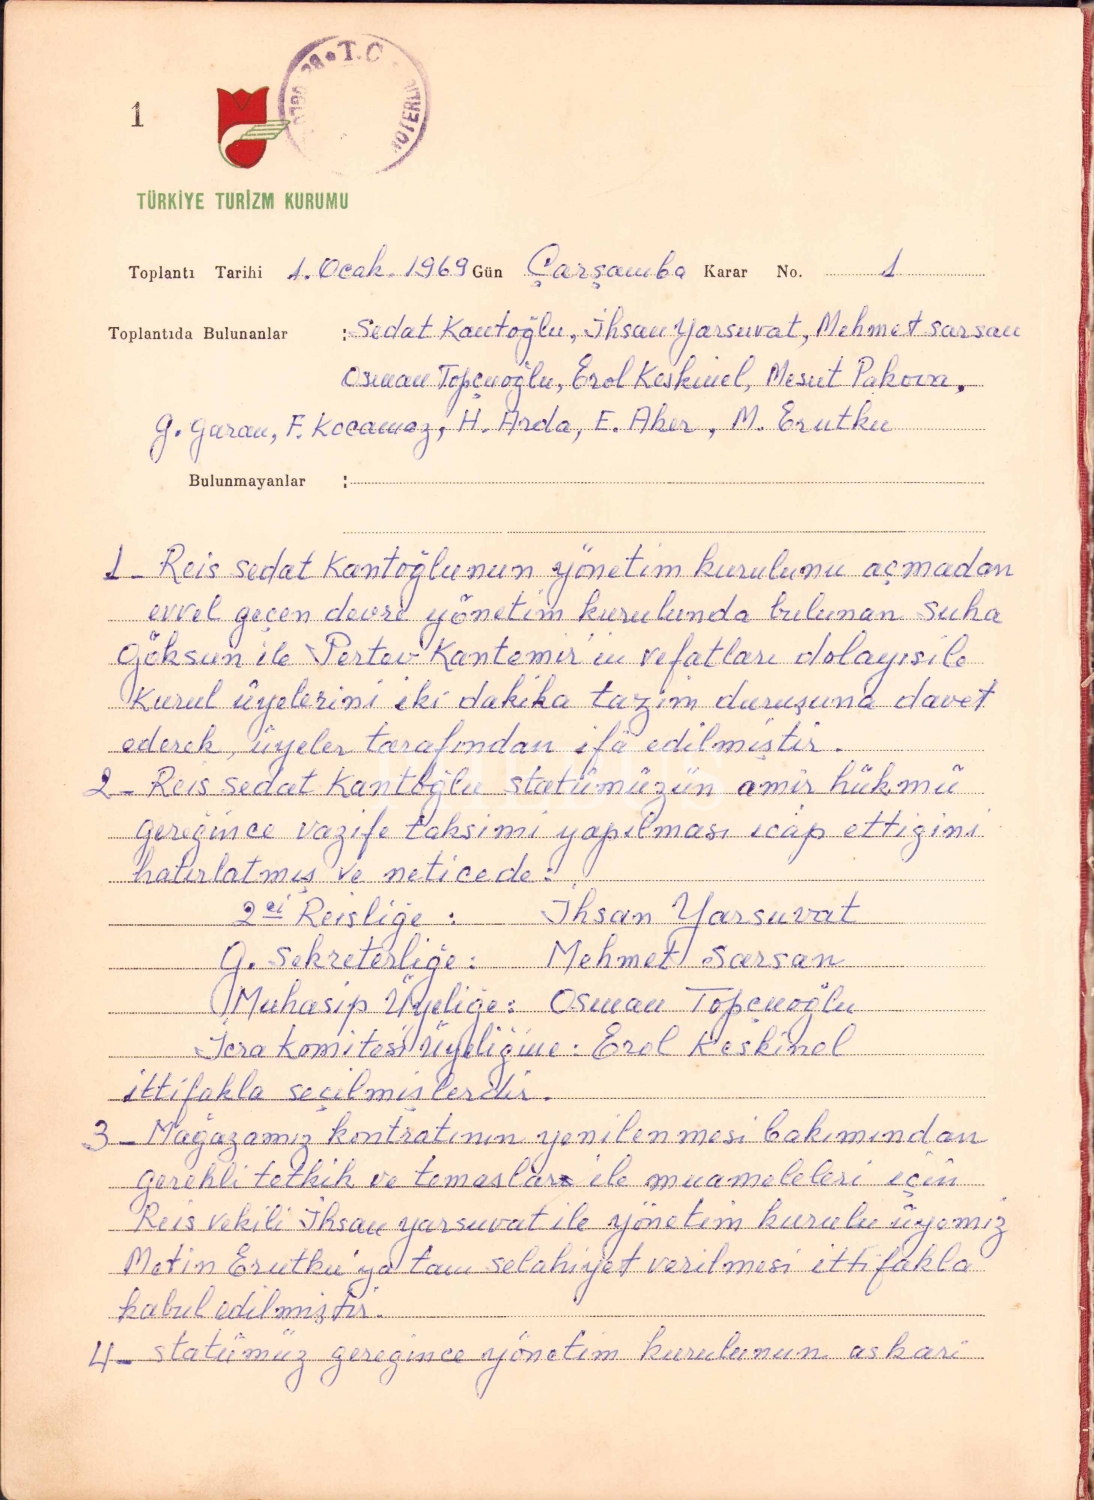 T.C
NOTERLİĞİ
1
TÜRKİYE TURİZM KURUMU
Toplantı Tarihi 1. Ocak. 1969 Gün Çarşamba Karar No. 1
Toplantıda Bulunanlar : Sedat Kantoğlu, İhsan Yarsuvat, Mehmet Sarsan
Osman Topçuoğlu, Erol Keskinel, Mesut Pakova,
G. Garan, F. Kocamaz, H. Arda, E. Aker, M. Erutku
Bulunmayanlar :
1_ Reis Sedat Kantoğlunun yönetim kurulunu açmadan
evvel geçen devre yönetim kurulunda bulunan Suha
Göksun ile Pertev Kantemir'in vefatları dolayısile
Kurul üyelerini iki dakika tazim duruşuna davet
ederek, üyeler tarafından ifâ edilmiştir.
2_ Reis Sedat Kantoğlu statümüzün amir hükmü
gereğince vazife taksimi yapılması icap ettiğini
hatırlatmış ve neticede:
2ci Reisliğe : İhsan Yarsuvat
G. Sekreterliğe: Mehmet Sarsan
Muhasip Üyeliğe: Osman Topçuoğlu
İcra Komitesi Üyeliğine: Erol Keskinel
ittifakla seçilmişlerdir.
3_ Mağazamız kontratının yenilenmesi bakımından
gerekli tetkik ve temaslar ile muameleleri için
Reis vekili İhsan Yarsuvat ile yönetim kurulu üyemiz
Metin Erutku'ya tam selahiyet verilmesi ittifakla
kabul edilmiştir.
4_ Statümüz gereğince yönetim kurulunun askari